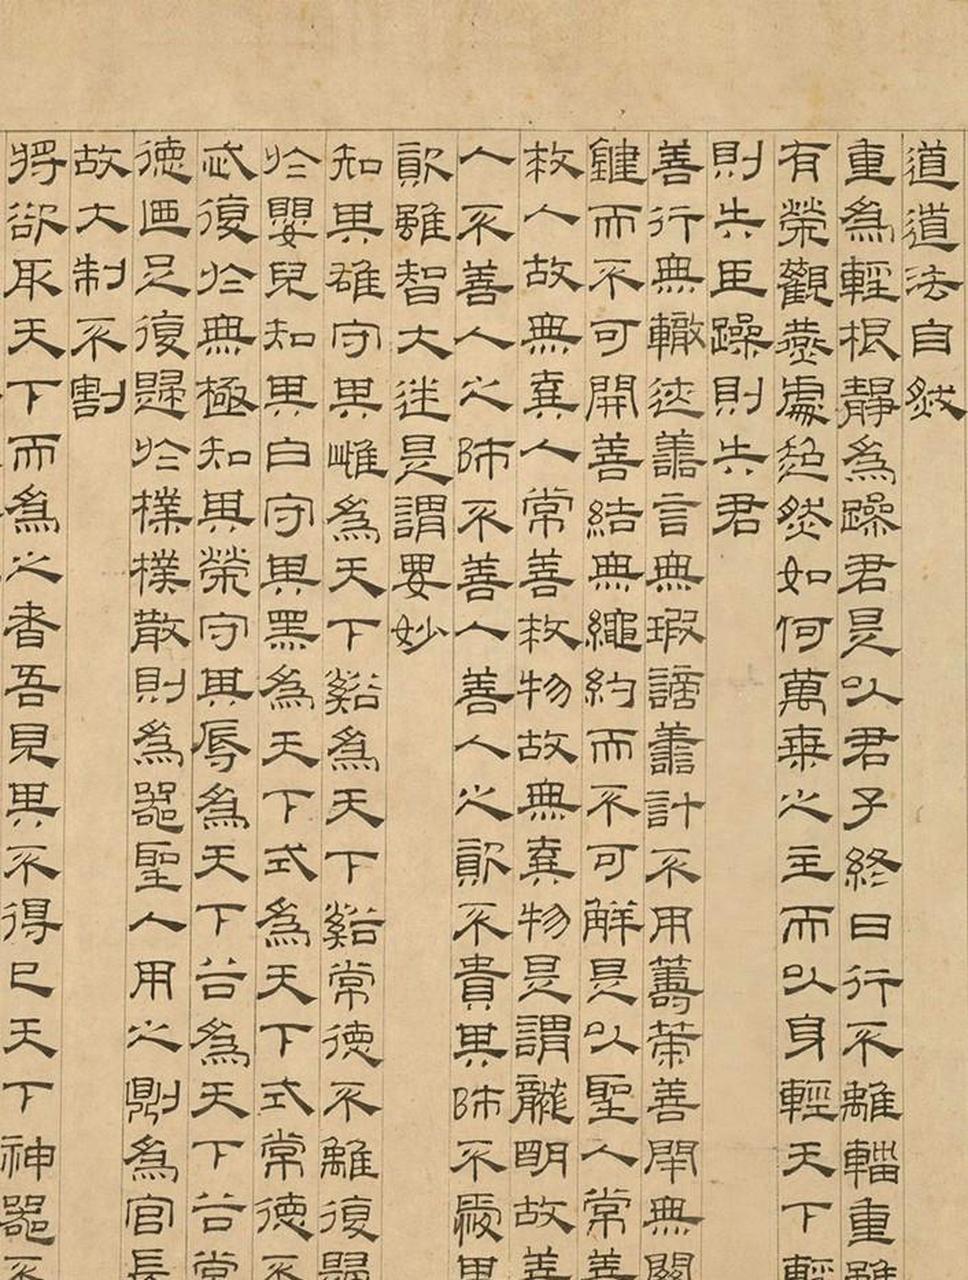 道道法自然
重為輕根靜為躁君是以君子終日行不離輜重雖
有榮觀燕處超然如何萬乘之主而以身輕天下輕
則失臣躁則失君
善行無轍迹善言無瑕謫善計不用籌策善閉無關
鍵而不可開善結無繩約而不可解是以聖人常善
救人故無棄人常善救物故無棄物是謂襲明故善
人不善人之師不善人善人之資不貴其師不愛其
資雖智大迷是謂要妙
知其雄守其雌為天下谿為天下谿常德不離復歸
於嬰兒知其白守其黑為天下式為天下式常德不
忒復於無極知其榮守其辱為天下谷為天下谷常
德迺足復歸於樸樸散則為器聖人用之則為官長
故大制不割
將欲取天下而為之者吾見其不得已天下神器不